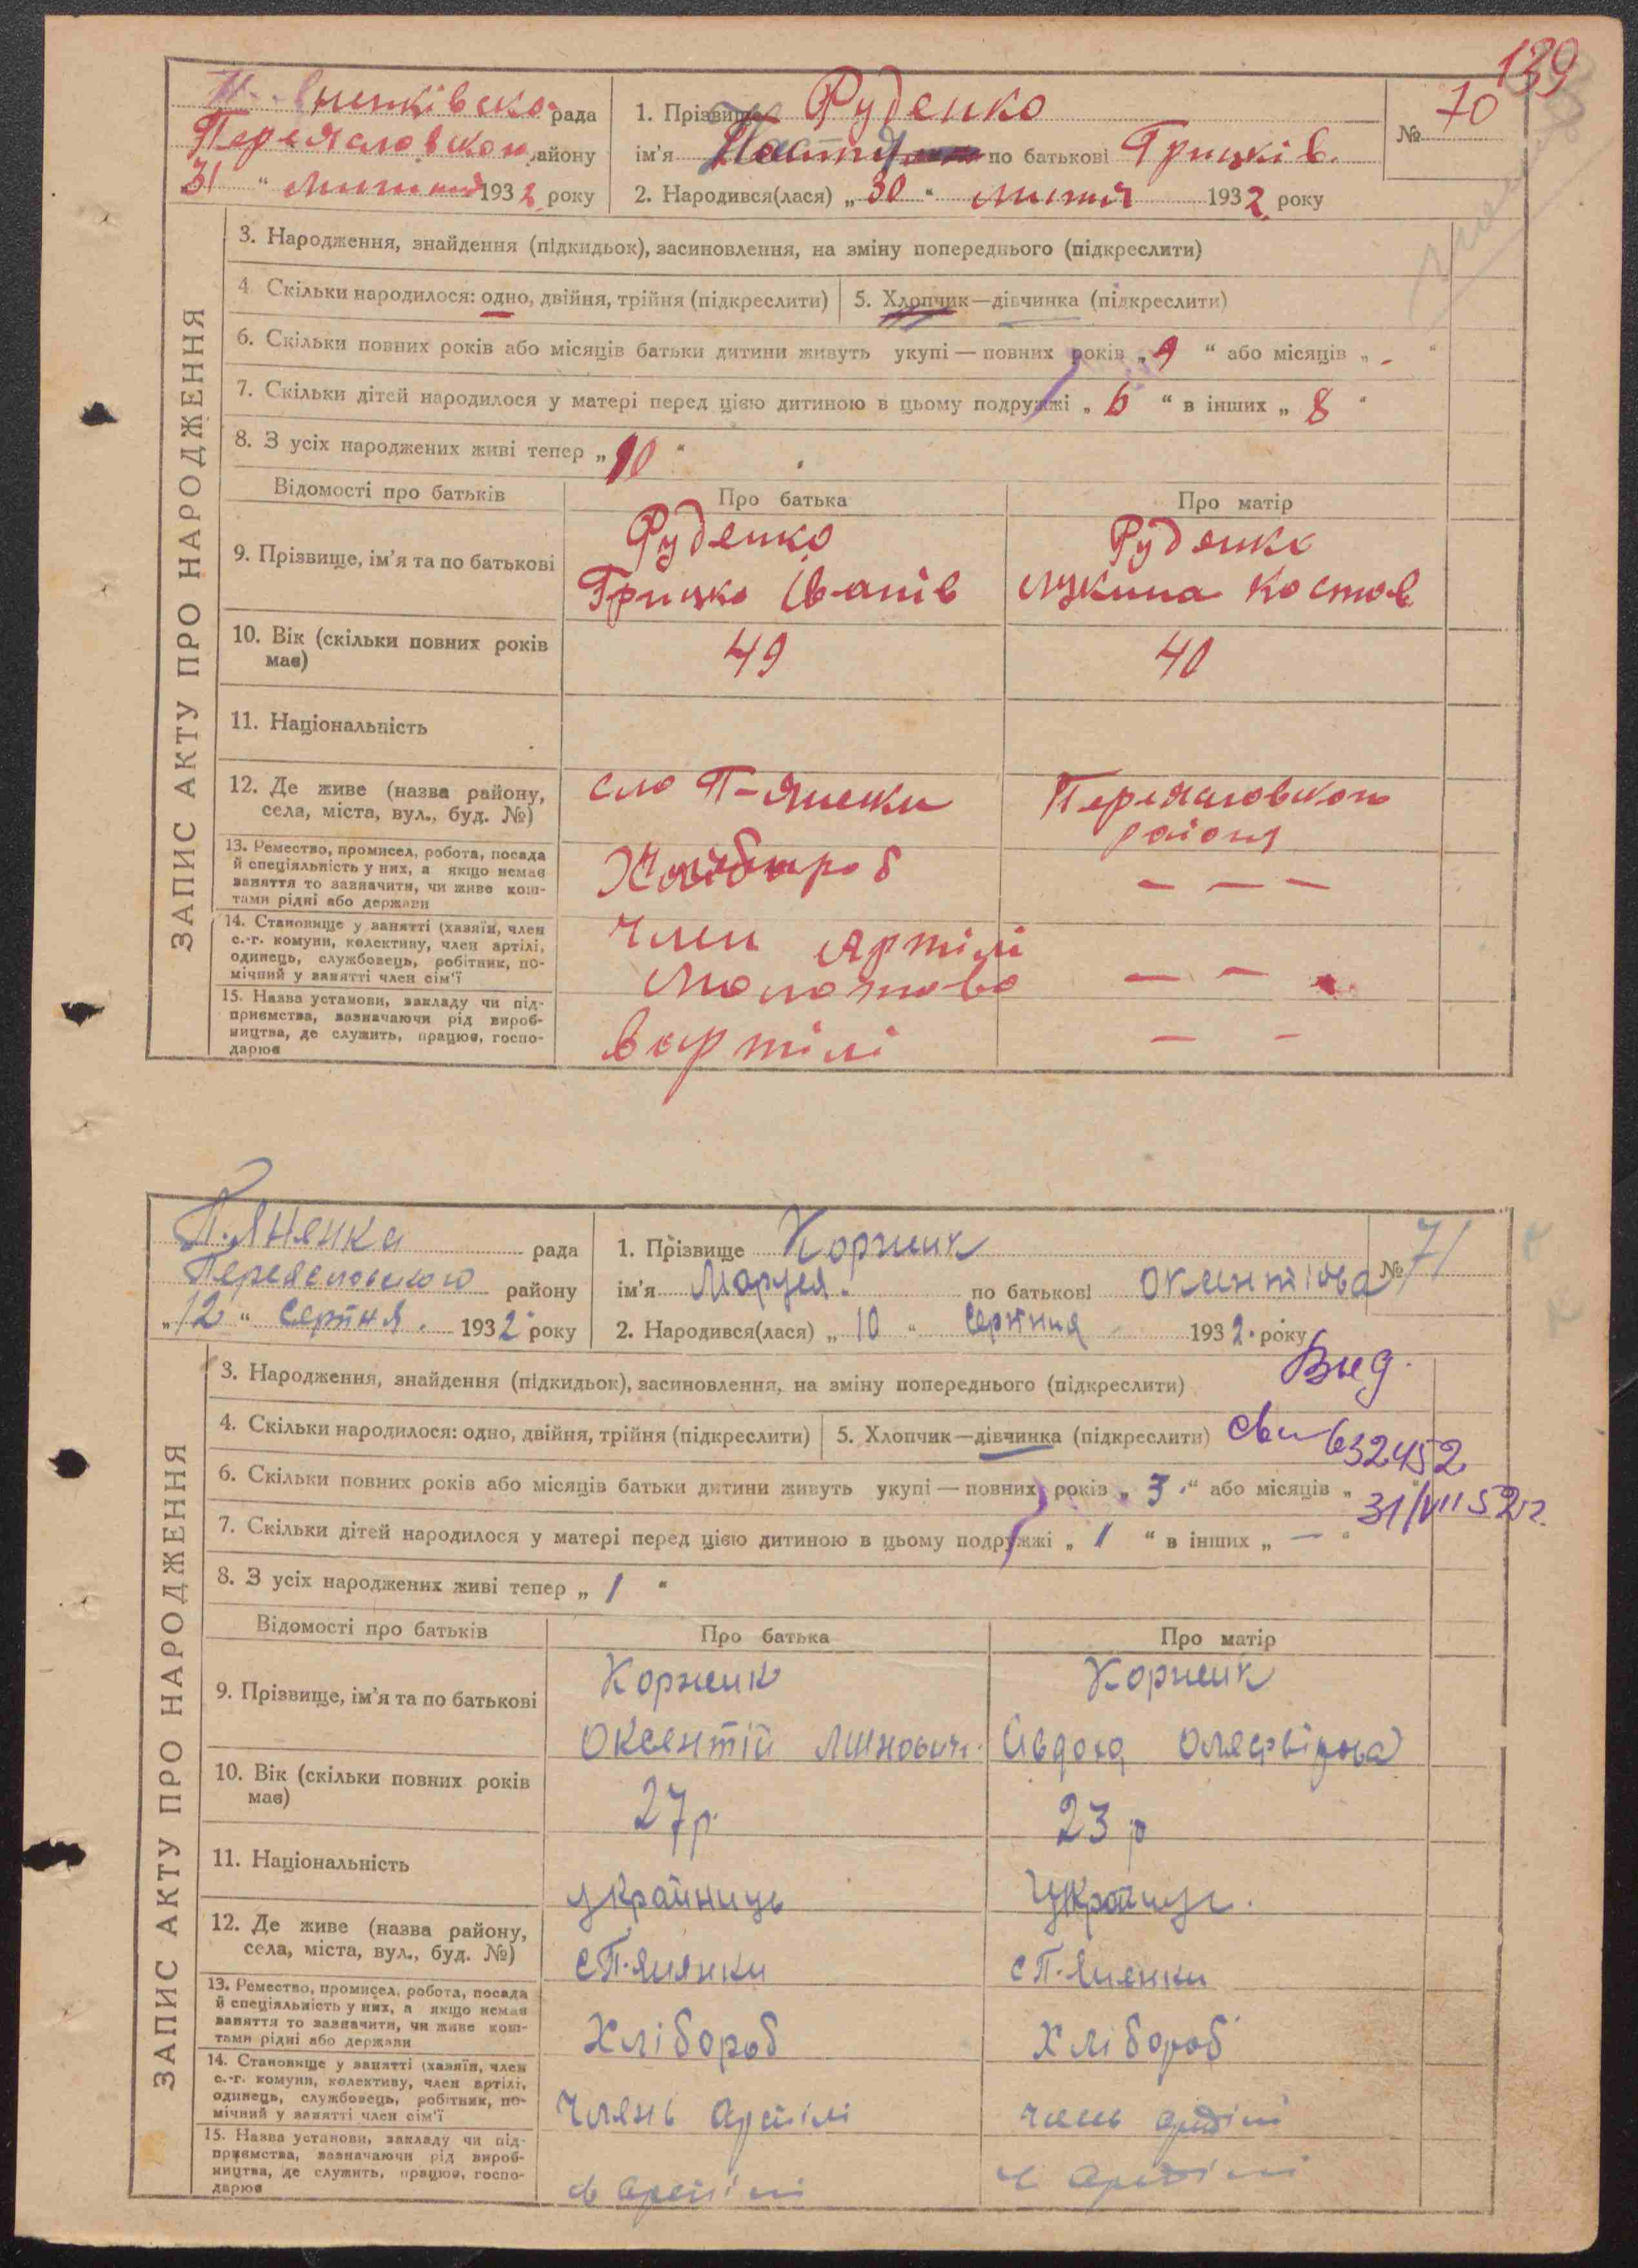 139
рада
1. Прізвище Руденко
№ 70
Переяславского району
ім'я по батькові Грицків.
31 " 1932 року
2. Народився(лася) „ 30 " липня 1932 року
ЗАПИС АКТУ ПРО НАРОДЖЕННЯ
3. Народження, знайдення (підкидьок), засиновлення, на зміну попереднього (підкреслити)
4. Скільки народилося: одно, двійня, трійня (підкреслити) 5. Хлопчик—дівчинка (підкреслити)
6. Скільки повних років або місяців батьки дитини живуть укупі — повних років „ 9 " або місяців „ - "
7. Скільки дітей народилося у матері перед цією дитиною в цьому подружжі „ 6 " в інших „ 8 "
8. З усіх народжених живі тепер „ 10 "
Відомості про батьків Про батька Про матір
9. Прізвище, ім'я та по батькові
Руденко Руденко
Грицко Іванів Лукина Костов
10. Вік (скільки повних років має)
49 40
11. Національність
12. Де живе (назва району, села, міста, вул., буд. №)
село П-яненки Переяславского района
13. Ремество, промисел, робота, посада й спеціяльність у них, а якщо немає заняття то зазначити, чи живе коштами рідні або держави
Хлібороб — — —
14. Становище у занятті (хазяїн, член с.-г. комуни, колективу, член артілі, одинець, службовець, робітник, помічний у занятті член сім'ї
Член Артілі — —
Молотова
15. Назва установи, закладу чи підприємства, зазначаючи рід виробництва, де служить, працює, господарює
в артілі — —
П.Яненка рада
1. Прізвище Коржик
№ 71
Переяславского району
ім'я по батькові Оксентіова
„ 12 " серпня. 1932 року
2. Народився(лася) „ 10 " серпня 1932. року
Выд.
ЗАПИС АКТУ ПРО НАРОДЖЕННЯ
3. Народження, знайдення (підкидьок), засиновлення, на зміну попереднього (підкреслити)
4. Скільки народилося: одно, двійня, трійня (підкреслити) 5. Хлопчик—дівчинка (підкреслити)
632452
6. Скільки повних років або місяців батьки дитини живуть укупі — повних років „ 3 " або місяців „
31/VII 52г.
7. Скільки дітей народилося у матері перед цією дитиною в цьому подружжі „ 1 " в інших „ — "
8. З усіх народжених живі тепер „ 1 "
Відомості про батьків Про батька Про матір
9. Прізвище, ім'я та по батькові
Коржик Коржик
Оксентій
10. Вік (скільки повних років має)
27р. 23р
11. Національність
українець
12. Де живе (назва району, села, міста, вул., буд. №)
с П-янянки с П-яненки
13. Ремество, промисел, робота, посада й спеціяльність у них, а якщо немає заняття то зазначити, чи живе коштами рідні або держави
Хлібороб Хлібороб
14. Становище у занятті (хазяїн, член с.-г. комуни, колективу, член артілі, одинець, службовець, робітник, помічний у занятті член сім'ї
Члень Артілі члень артілі
15. Назва установи, закладу чи підприємства, зазначаючи рід виробництва, де служить, працює, господарює
в Артілі в Артілі